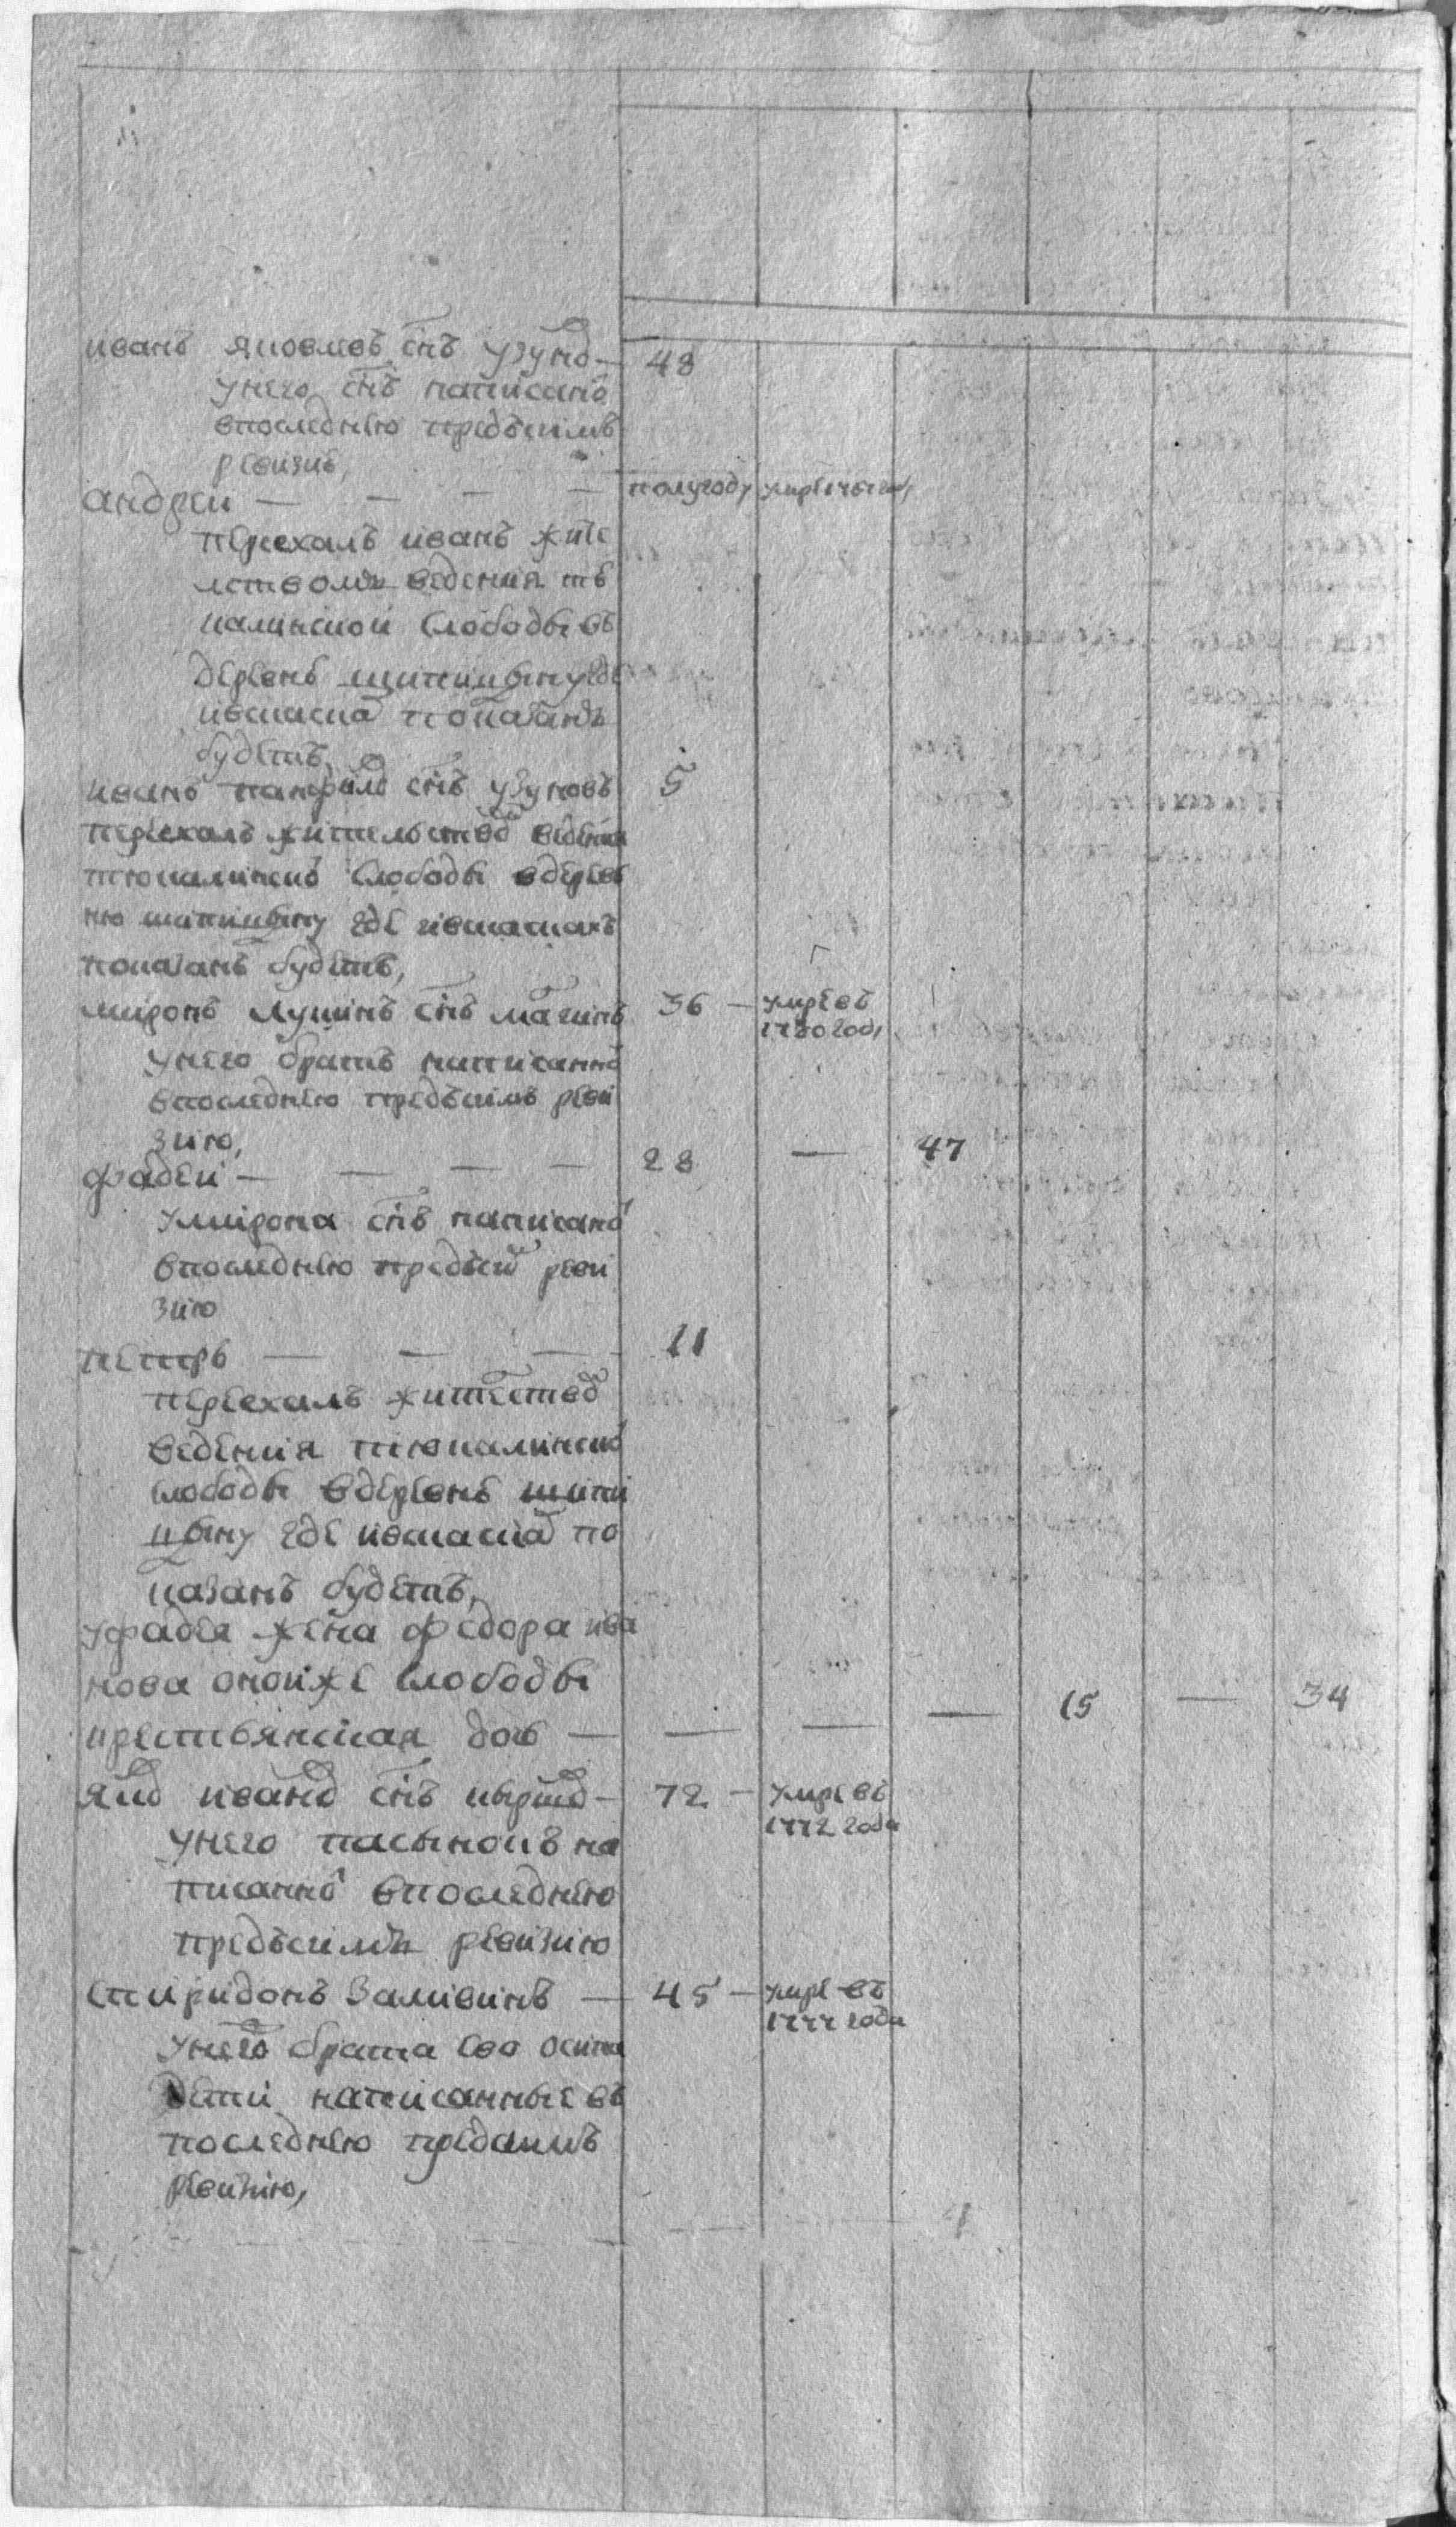 иванъ яковлевъ снъ узунов— 48
у него снъ написанъ
впоследнею предъсимъ
ревизиѣ,
андреи — — — — полугоду умре
переехалъ иванъ жите
лствомъ ведения тю
калинской слободы въ
деревнѣ шипицыну где
ивсказка показанъ
будетъ,
иванъ панфилов снъ узуновъ 5
переехалъ жителством ведения
тюкалинскои слободы вдерев
ню шипицыну где ивсказкахъ
показанъ будетъ,
миронъ лукинъ снъ 36 — умре въ
1780 году
у него братъ написанной
впоследнею предъсимъ реви
зию,
фадеи — — — — 28 — 47
у мирона снъ написанъ
впоследнею предъсим реви
зию
петръ — — — 11
переехалъ жителством
ведения тюкалинскои
слободы вдеревнѣ шипи
цыну где ивсказка по
казанъ будетъ,
у фадея жена федора ива
нова оноиже слободы
крестьянская дочь — — — — 15 — 34
яков иванов снъ — 72 — умре въ
1772 года
у него пасынокъ на
писанной впоследнею
предъсимъ ревизию
спиридонъ заливинъ — 45 — умре въ
1777 года
у него брата ево осипа
дети написанные въ
последнею предсимъ
ревизию,